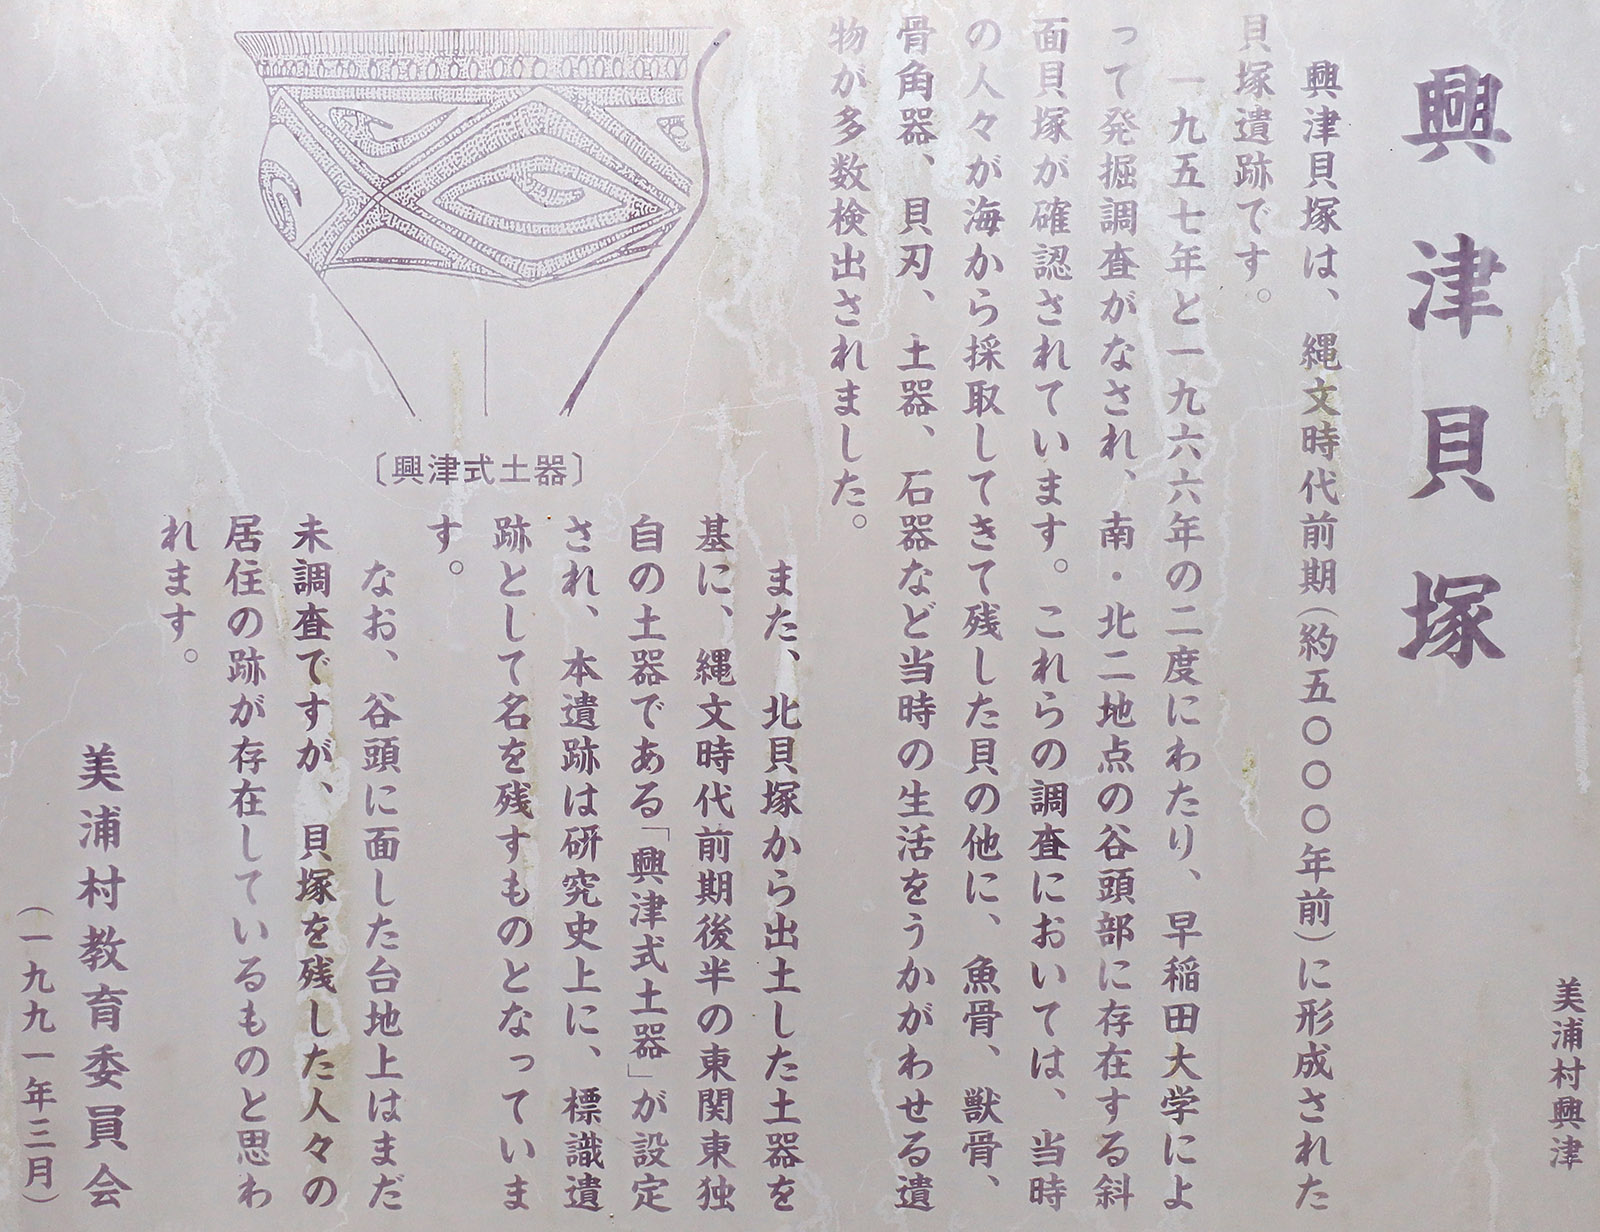 美浦村興津
興津貝塚
興津貝塚は、縄文時代前期(約五〇〇〇年前)に形成された
貝塚遺跡です。
一九五七年と一九六六年の二度にわたり、早稲田大学によ
って発掘調査がなされ、南・北二地点の谷頭部に存在する斜
面貝塚が確認されています。これらの調査においては、当時
の人々が海から採取してきて残した貝の他に、魚骨、獣骨、
骨角器、貝刃、土器、石器など当時の生活をうかがわせる遺
物が多数検出されました。
また、北貝塚から出土した土器を
基に、縄文時代前期後半の東関東独
自の土器である「興津式土器」が設定
され、本遺跡は研究史上に、標識遺
跡として名を残すものとなっていま
す。
なお、谷頭に面した台地上はまだ
未調査ですが、貝塚を残した人々の
居住の跡が存在しているものと思わ
れます。
〔興津式土器〕
美浦村教育委員会
(一九九一年三月)